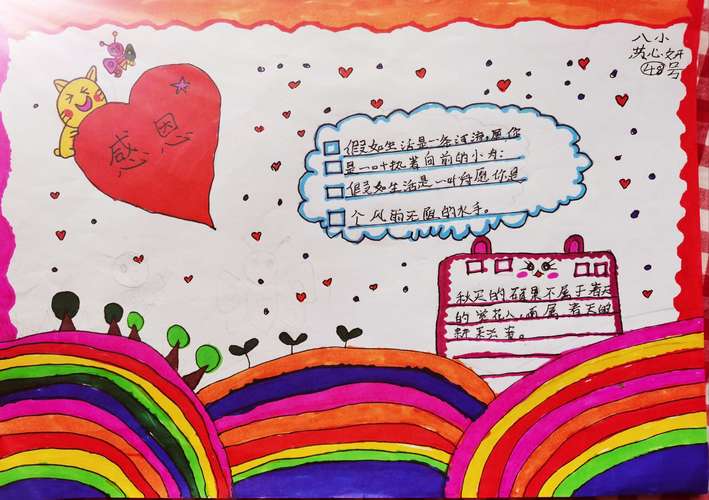 八小
心妍
48号
感恩
假如生活是一条河流,愿你
是一叶执着向前的小舟:
假如生活是一叶舟愿你是
个风雨无阻的水手。
秋天的硕果不属于春天
的赏花人,而属春天的
耕耘者。